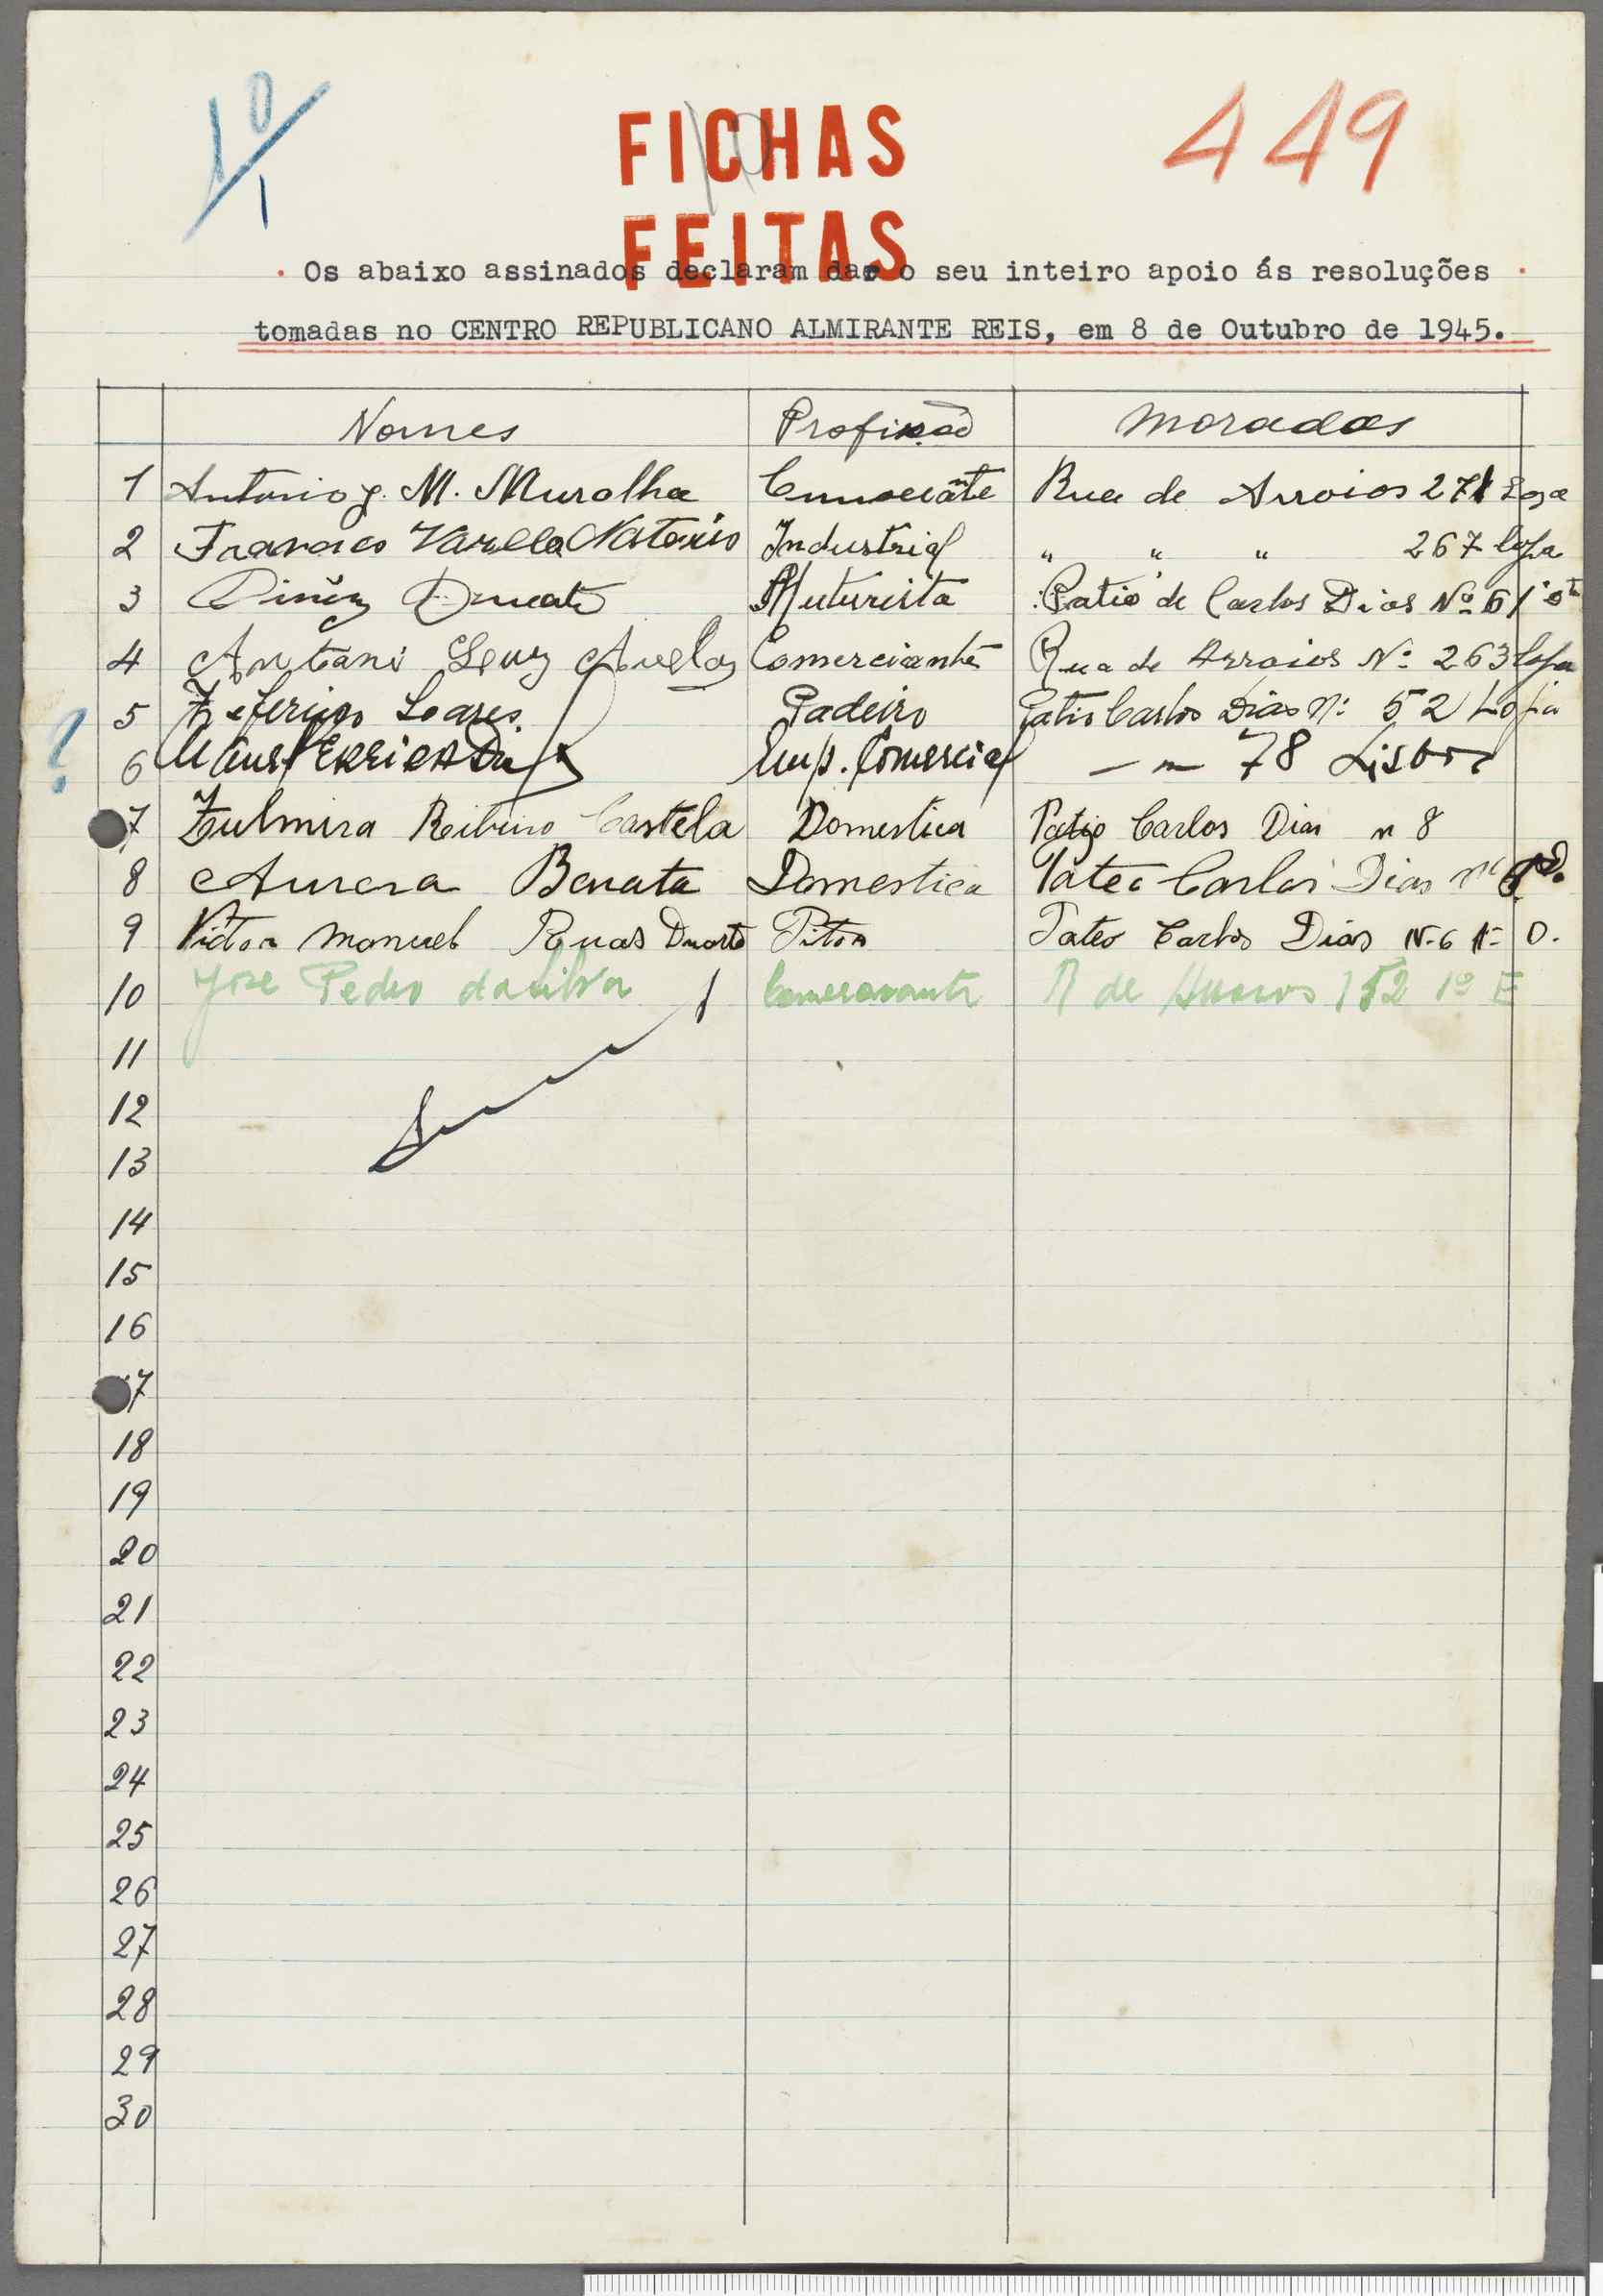 10
1
FICHAS
FEITAS
10
449
Os abaixo assinados declaram dar o seu inteiro apoio ás resoluções
tomadas no CENTRO REPUBLICANO ALMIRANTE REIS, em 8 de Outubro de 1945.
Nomes Profissão Moradas
1 Antonio J. M. Muralha Rua de Arroios 271 Loja
2 Francisco Varella Natario Industrial " " " 267 loja
3 Duarte Muturista Patio de Carlos Dias Nº 6 1º
4 Comerciante Rua de Arroios Nº 263 loja
5 Zeferino Soares Padeiro Patio Carlos Dias Nº 52 Loja
? 6 Emp. Comercial — " 78 Lisboa
7 Zulmira Ribeiro Castela Domestica Patio Carlos Dias n 8
8 Aurora Benata Domestica Pateo Carlos Dias nº
9 Victor Manuel Ruas Duarte Pateo Carlos Dias Nº 6 D.
10 José Pedro da Silva Comerciante R de Arroios 152 1º E
11
12
13
14
15
16
17
18
19
20
21
22
23
24
25
26
27
28
29
30